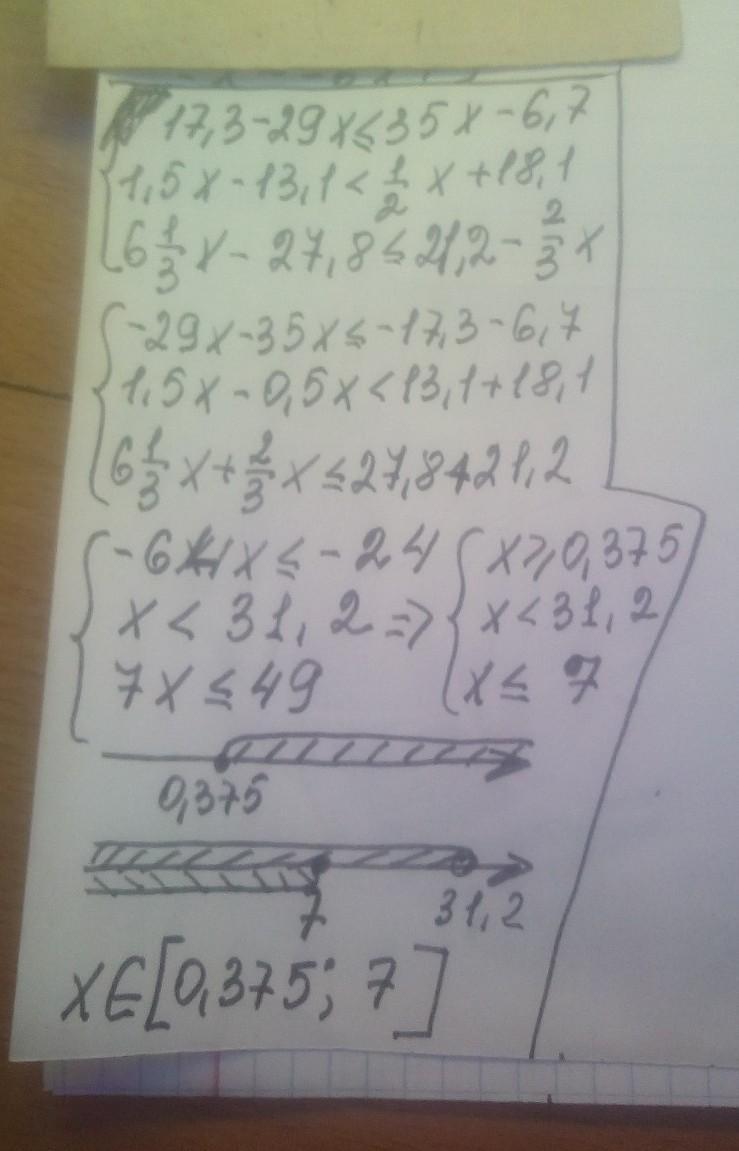 17,3-29x≤35x-6,7
1,5x-13,1<1/2x+18,1
6 1/3x-27,8≤21,2-2/3x
-29x-35x≤-17,3-6,7
1,5x-0,5x<13,1+18,1
6 1/3x+2/3x≤27,8+21,2
-64x≤-24
x<31,2 =>
7x≤49
x≥0,375
x<31,2
x≤7
0,375
7 31,2
x∈[0,375; 7]